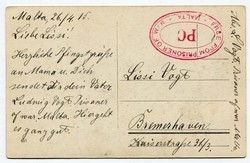 Malta, 26/4 15.
Liebe Lisi!
Herzliche Pfingstgrüße
an Mama u. Dich
sendet Dir dein Vater
Ludwig Vogt Prisoner
of war Malta. Hier geht
es ganz gut.
FROM PRISONER OF
MALTA
PC
Lisi Vogt
Bremerhaven
Kaiserstraße